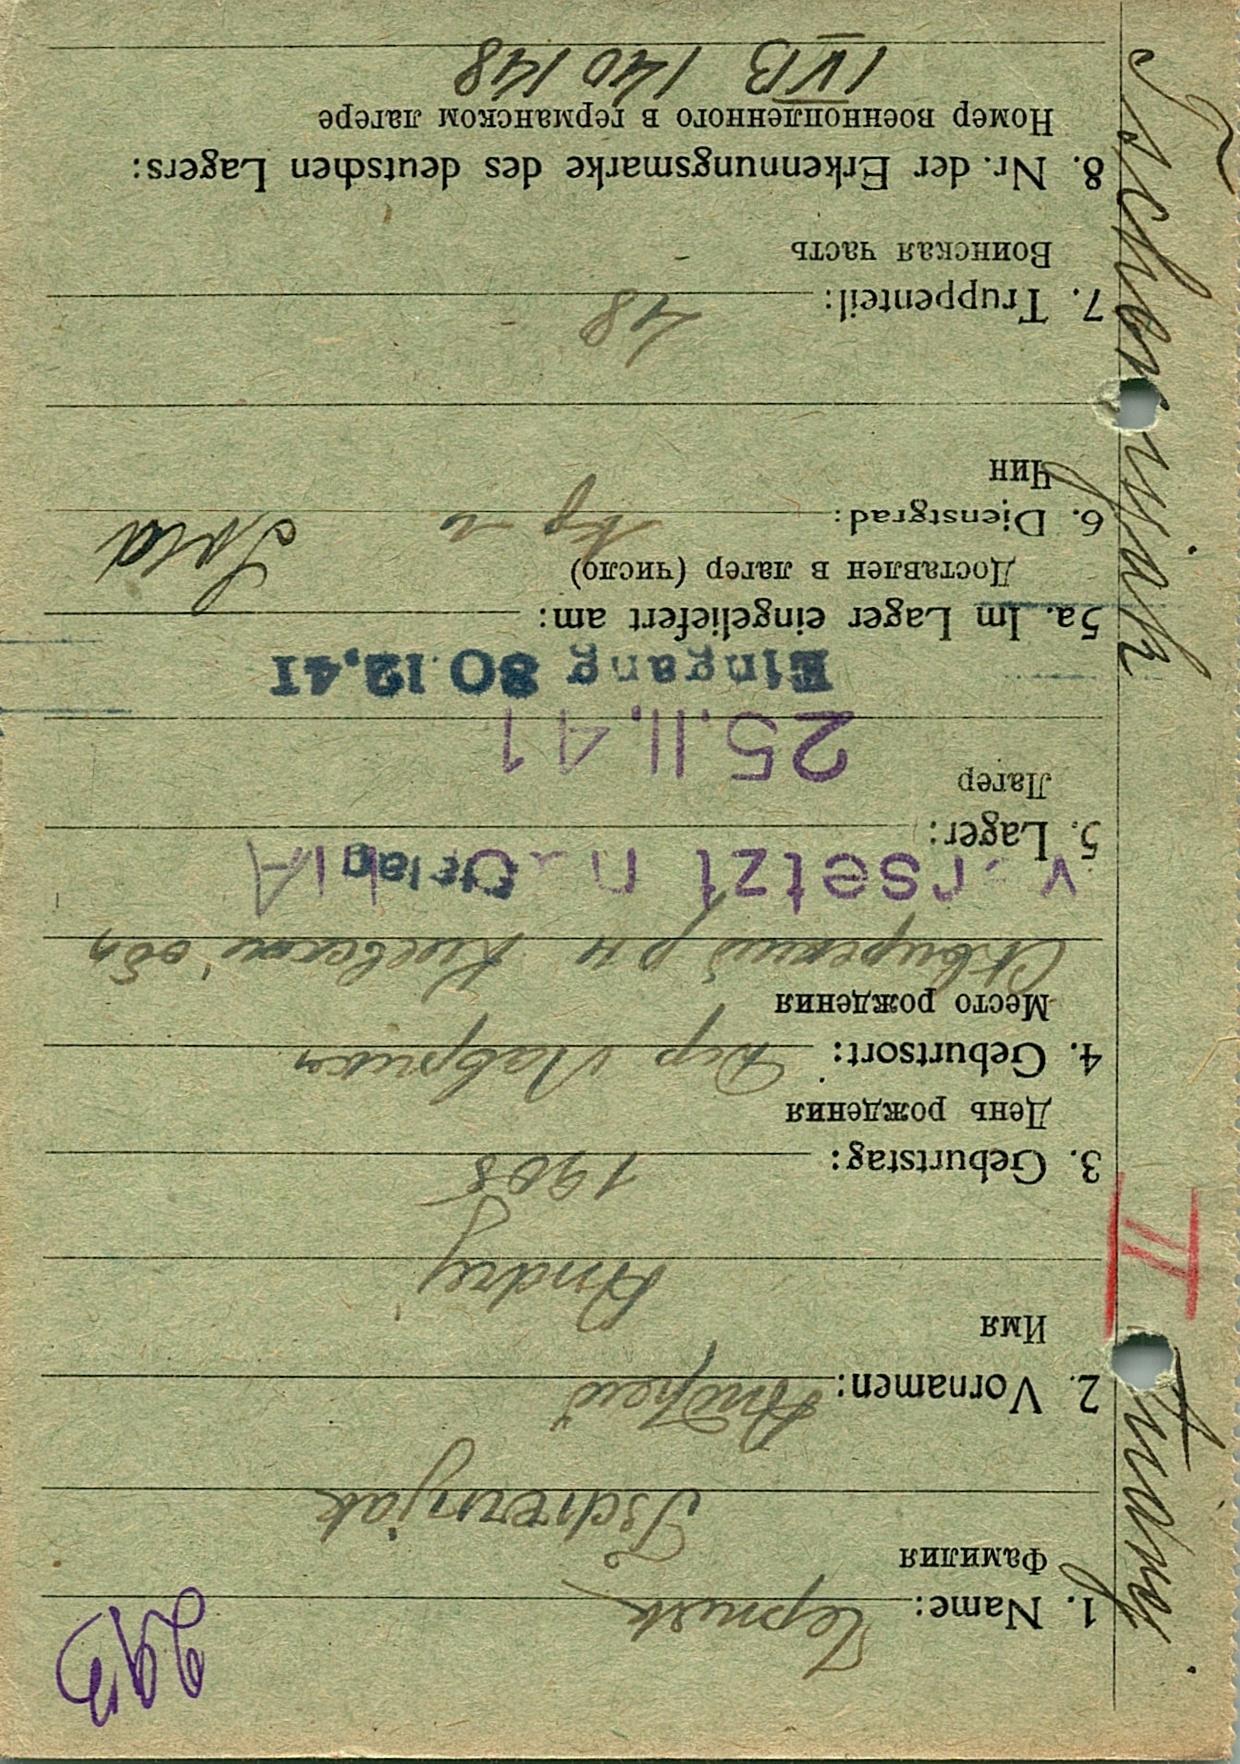 1. Name: Черняк
Фамилия
Tschernjak
2. Vornamen: Андрей
Имя
Andrej
3. Geburtstag: 1908
День рождения
4. Geburtsort: Дер
Место рождения
Сквирский р н Киевской обл
5. Lager:
Лагер
25.11.41
Eingang 30.12.41
5a. Im Lager eingeliefert am:
Доставлен в лагер (число)
6. Dienstgrad:
Чин
7. Truppenteil: 48
Воинская часть
8. Nr. der Erkennungsmarke des deutschen Lagers:
Номер военнопленного в германском лагере
IVB 140148
Tschernjak
II
Andrej